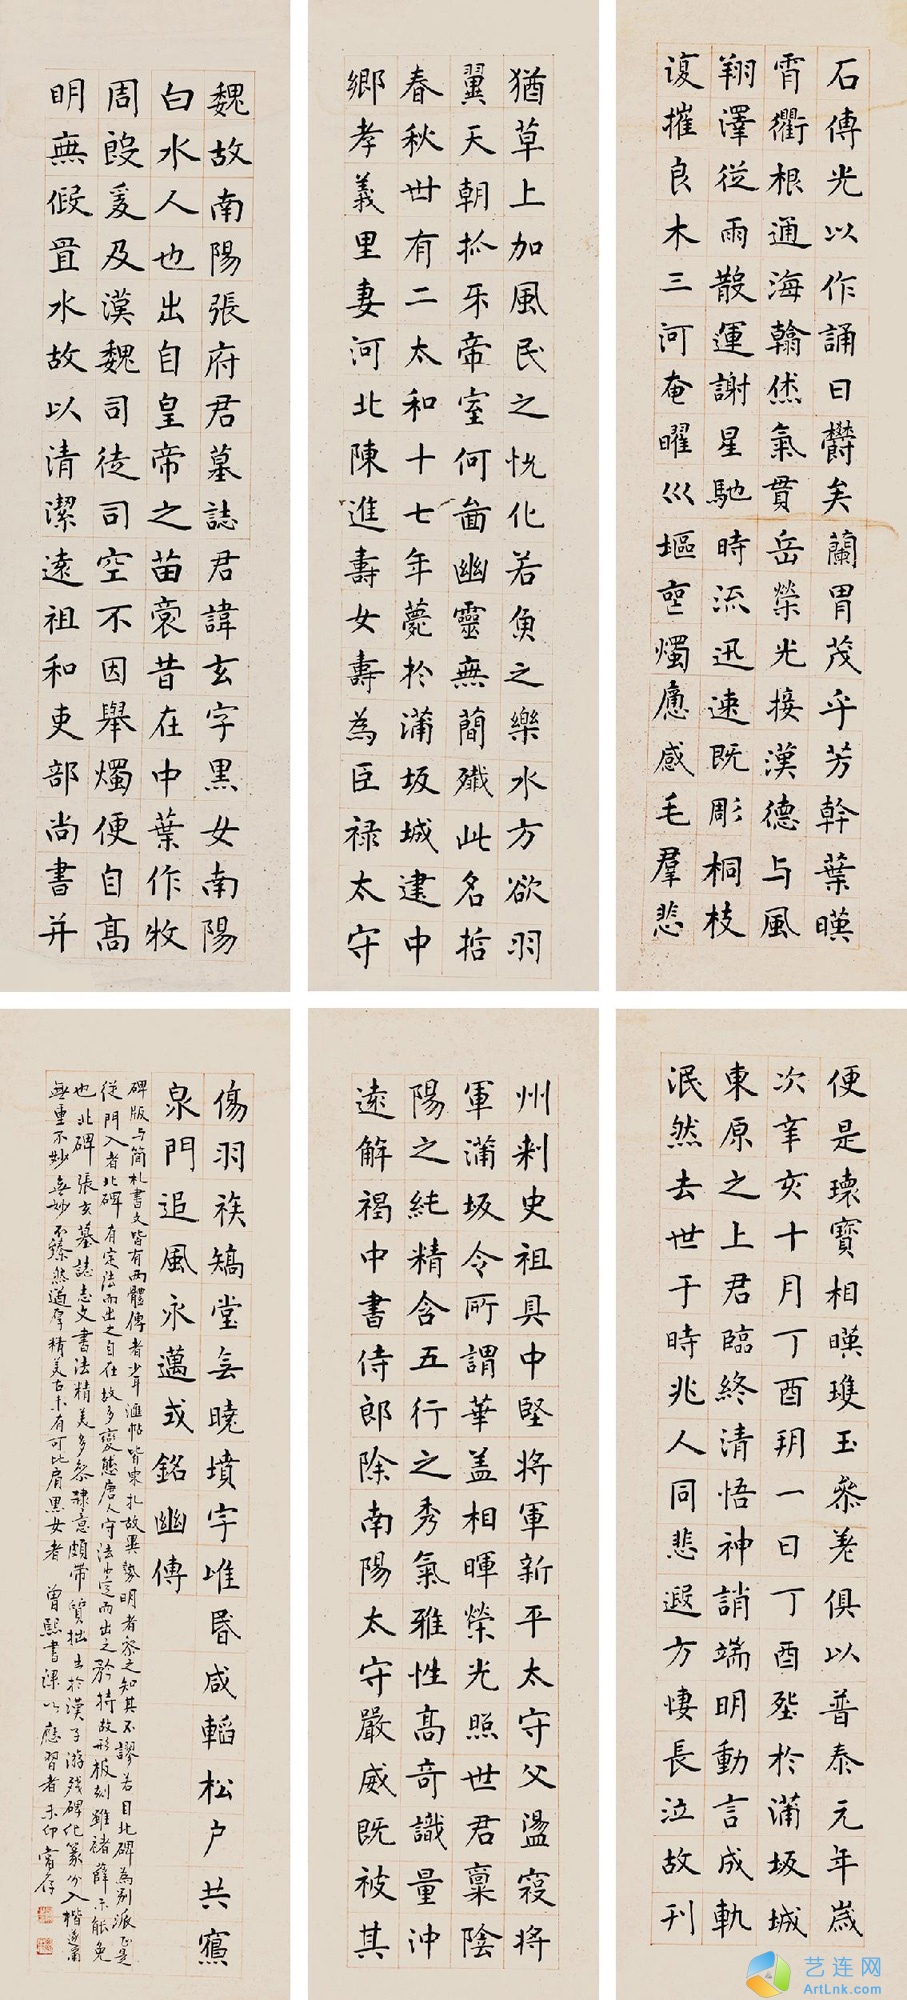 魏故南陽張府君墓誌君諱玄字黑女南陽
白水人也出自皇帝之苗裔昔在中葉作牧
周殷爰及漢魏司徒司空不因舉燭便自高
明無假置水故以清潔遠祖和吏部尚書并
州刺史祖具中堅將軍新平太守父盪寇將
軍蒲坂令所謂華蓋相暉榮光照世君稟陰
陽之純精含五行之秀氣雅性高奇識量沖
遠解褐中書侍郎除南陽太守嚴威既被其
猶草上加風民之悅化若魚之樂水方欲羽
翼天朝抓牙帝室何啚幽靈無蕳殲此名哲
春秋卅有二太和十七年薨於蒲坂城建中
鄉孝義里妻河北陳進壽女壽為巨祿太守
便是瓌寶相暎瓊玉參差俱以普泰元年歲
次辛亥十月丁酉朔一日丁酉塟於蒲坂城
東原之上君臨終清悟神誚端明動言成軌
泯然去世于時兆人同悲遐方悽長泣故刊
石傳光以作誦曰欝矣蘭冑茂乎芳幹葉暎
霄衢根通海翰烋氣貫岳榮光接漢德与風
翔澤從雨散運謝星馳時流迅速既彫桐枝
復摧良木三河奄曜巛塸堙燭慟感毛羣悲
傷羽族矯堂無曉墳宇唯昏咸韜松戶共寢
泉門追風永邁式銘幽傳
碑版与簡札書文皆有兩體傳者少耳滙帖皆柬札故異勢明者察之知其不謬若目北碑為別派正是
從門入者北碑有定法而出之自在故多變態唐人守法定而出之矜持故形板刻雖褚薛未能免
也北碑張玄墓誌志文書法精美多參隸意頗帶質拙出於漢子游殘碑化篆分入楷遂爾
無重不妙無妙不臻然遒厚精美古未有可比肩黑女者 曾熙書課以應習者未印當存
艺连网
ArtLnk.com